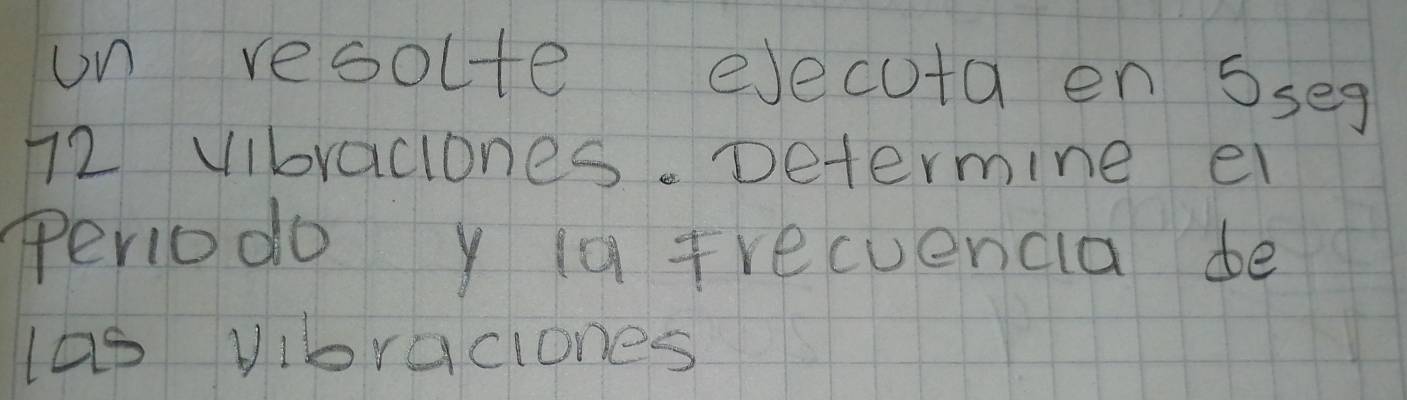 un resolte ejecuta en 5seg
72 vibraciones. Determine el
Periodo y la frecuencia de
las vibraciones